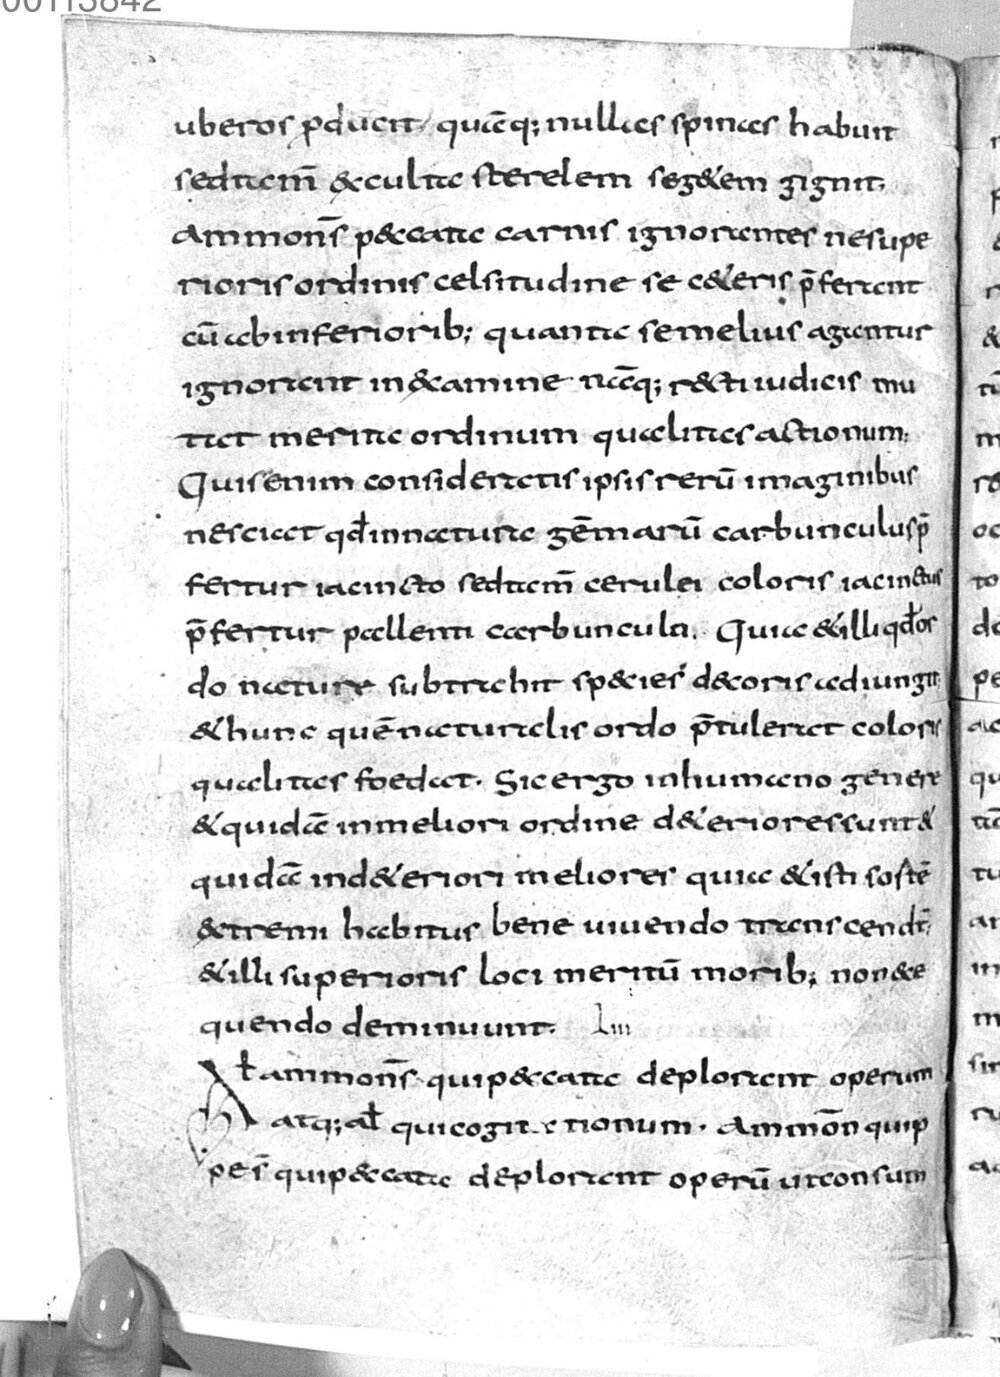 00113842
uberos ꝓducit quāq; nullas spinas habuit
sed tam̄ &culta sterelem seg&em gignit;
Ammon̄s p&cata carnis ignorantes ne supe
rioris ordinis celsitudine se c&eris p̄ferant
cū ab inferiorib; quanta se melius agantur
ignorant in &amine nāq; r&cti iudicis mu
tat merita ordinum qualitas actionum;
Quis enim consideratis ipsis rerū imaginibus
nesciat qđ in natura gēmarū carbunculus p̄
fertur iacincto sed tam̄ cerulei coloris iacinctus
p̄fertur pallenti carbunculo. Quia & illi qđ or
do nature subtrahit sp&ies d&coris adiungit
& hunc quē naturalis ordo p̄tulerat coloris
qualitas foedat. Sic ergo in humano genere
& quidā in meliori ordine d&eriores sunt &
quidā in d&eriori meliores quia & isti sortē
&tremi habitus bene uiuendo transcendt̄;
& illi superioris loci meritū morib; non &e
quendo deminuunt. Liii
Alt ammon̄s qui p&cata deplorant operum
atq; alt qui cogitationum. Ammon̄ quip
pe s̄ qui p&cata deplorant operū ut consum